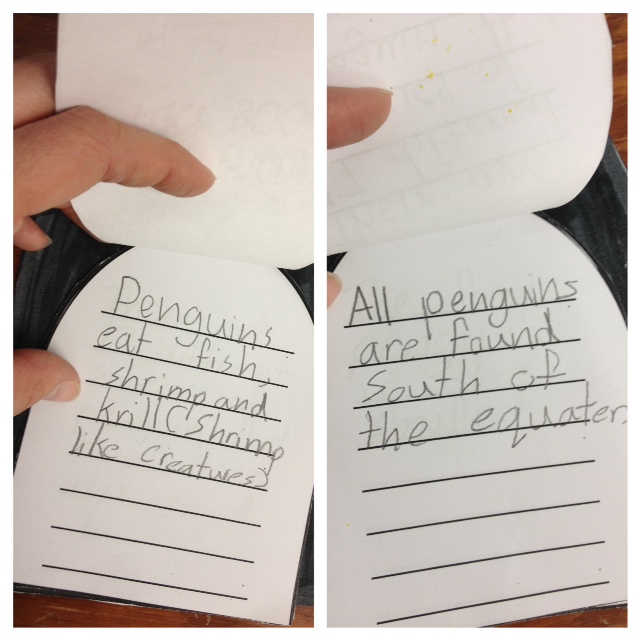 Penguins
eat fish,
shrimp and
krill (Shrimp
like creatures)
All penguins
are found
South of
the equater.